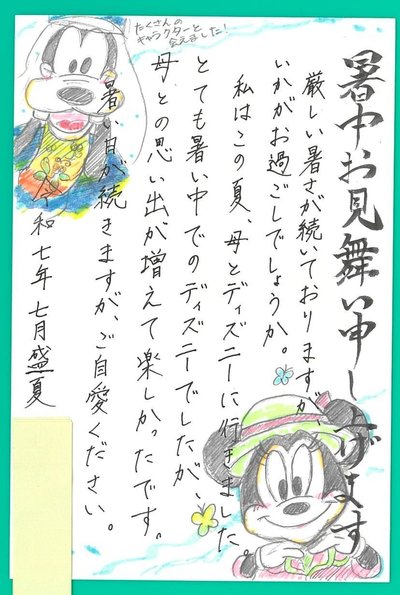 暑中お見舞い申し上げます
厳しい暑さが続いておりますが、
いかがお過ごしでしょうか。
私はこの夏、母とディズニーに行きました。
とても暑い中でのディズニーでしたが、
母との思い出が増えて楽しかったです。
暑い日が続きますが、ご自愛ください。
令和七年七月盛夏
たくさんの
キャラクターと
会えました！